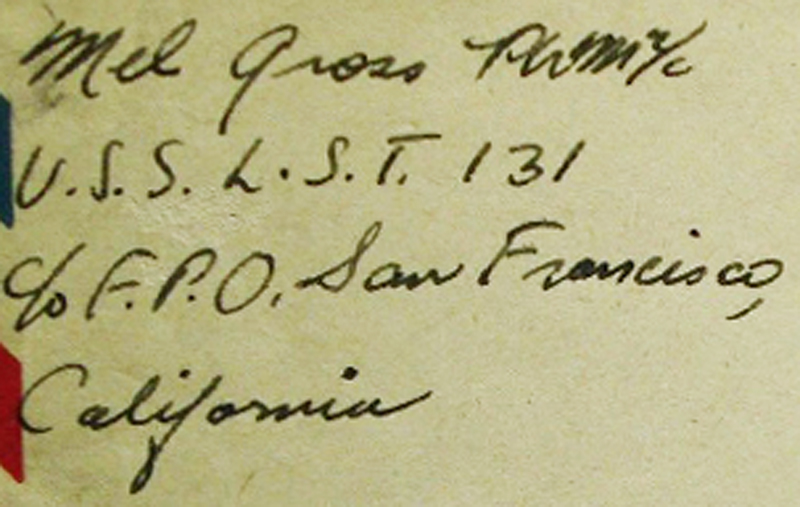 Mel Gross PhM 2/c
U.S.S. L.S.T. 131
c/o F.P.O. San Francisco,
California